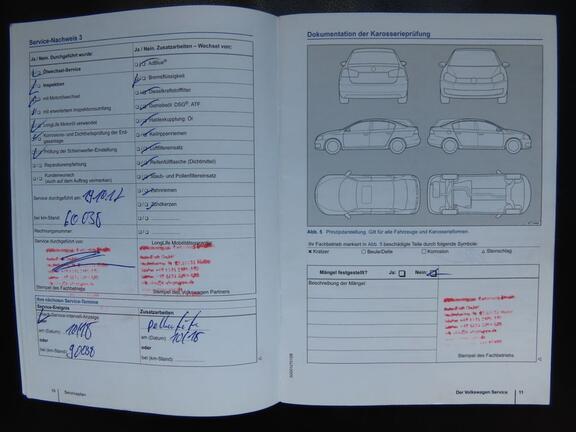 Service-Nachweis 3
Ja / Nein, Durchgeführt wurde:
Ja / Nein, Zusatzarbeiten – Wechsel von:
Ölwechsel-Service
AdBlue®
Inspektion
Bremsflüssigkeit
mit Motorölwechsel
Dieselkraftstofffilter
mit erweitertem Inspektionsumfang
Getriebeöl DSG®, ATF
LongLife Motoröl verwendet
Haldexkupplung: Öl
Korrosions- und Dichtheitsprüfung der Erdgasanlage
Keilrippenriemen
Luftfiltereinsatz
Prüfung der Scheinwerfer-Einstellung
Reifenfüllflasche (Dichtmittel)
Reparaturempfehlung
Staub- und Pollenfiltereinsatz
Kundenwunsch
(auch auf dem Auftrag vermerken)
Zahnriemen
Service durchgeführt am:
Zündkerzen
bei km-Stand: 60.038
Rechnungsnummer:
Service durchgeführt von:
LongLife Mobilitätsgarantie
Stempel des Fachbetriebs
Stempel des Volkswagen Partners
Ihre nächsten Service-Termine
Service-Ereignis
Zusatzarbeiten
nach Service-Intervall-Anzeige
am (Datum) 10/18
am (Datum) 10/18
oder
oder
bei (km-Stand) 90038
bei (km-Stand)
10
Serviceplan
Dokumentation der Karosserieprüfung
Abb. 5 Prinzipdarstellung. Gilt für alle Fahrzeuge und Karosserieformen.
Ihr Fachbetrieb markiert in Abb. 5 beschädigte Teile durch folgende Symbole:
× Kratzer ○ Beule/Delle □ Korrosion △ Steinschlag
Mängel festgestellt? Ja: Nein:
Beschreibung der Mängel:
Stempel des Fachbetriebs
Der Volkswagen Service 11